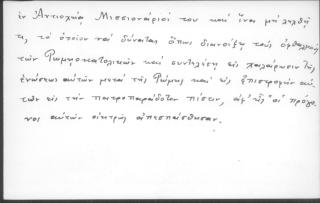 ἐν Ἀντιοχείᾳ Μισσιονάριοί του καὶ ἵνα μὴ ληφθῇ
τι, τὸ ὁποῖον νὰ δύναται ὅπως διανοίξῃ τοὺς ὀφθαλμοὺς
τῶν Ρωμαιοκαθολικῶν καὶ συντελέσῃ εἰς χαλάρωσιν τῆς
ἑνώσεως αὐτῶν μετὰ τῆς Ρώμης καὶ εἰς ἐπιστροφὴν αὐ-
τῶν εἰς τὴν πατροπαράδοτον πίστιν, ἀφ' ἧς οἱ πρόγο-
νοι αὐτῶν οἰκτρῶς ἀπεσπάσθησαν.